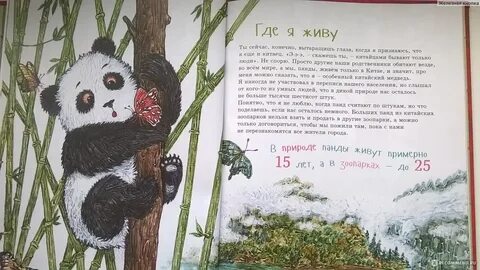 Железная кнопка
Где я живу
Ты сейчас, конечно, вытаращишь глаза, когда я признаюсь, что
я еще и китаец. «Э-э-э, — скажешь ты, — китайцами бывают только
люди». Не спорю. Просто другие наши родственники обитают везде,
во всём мире, а мы, панды, живём только в Китае, и значит, про
меня можно сказать, что я – особенный китайский медведь.
Я никогда не участвовал в переписи нашего населения, но слышал
от кого-то из умных людей, что в дикой природе нас осталось не
больше тысячи шестисот штук.
Понятно, что я не люблю, когда панд считают по штукам, но что
поделаешь, если нас осталось немного. Больших панд из китайских
зоопарков нельзя взять и продать в другие зоопарки, а можно
только договориться, чтобы мы пожили там, пока с нами
не перезнакомятся все жители города.
В природе панды живут примерно
15 лет, а в зоопарках – до 25
irecommend.ru